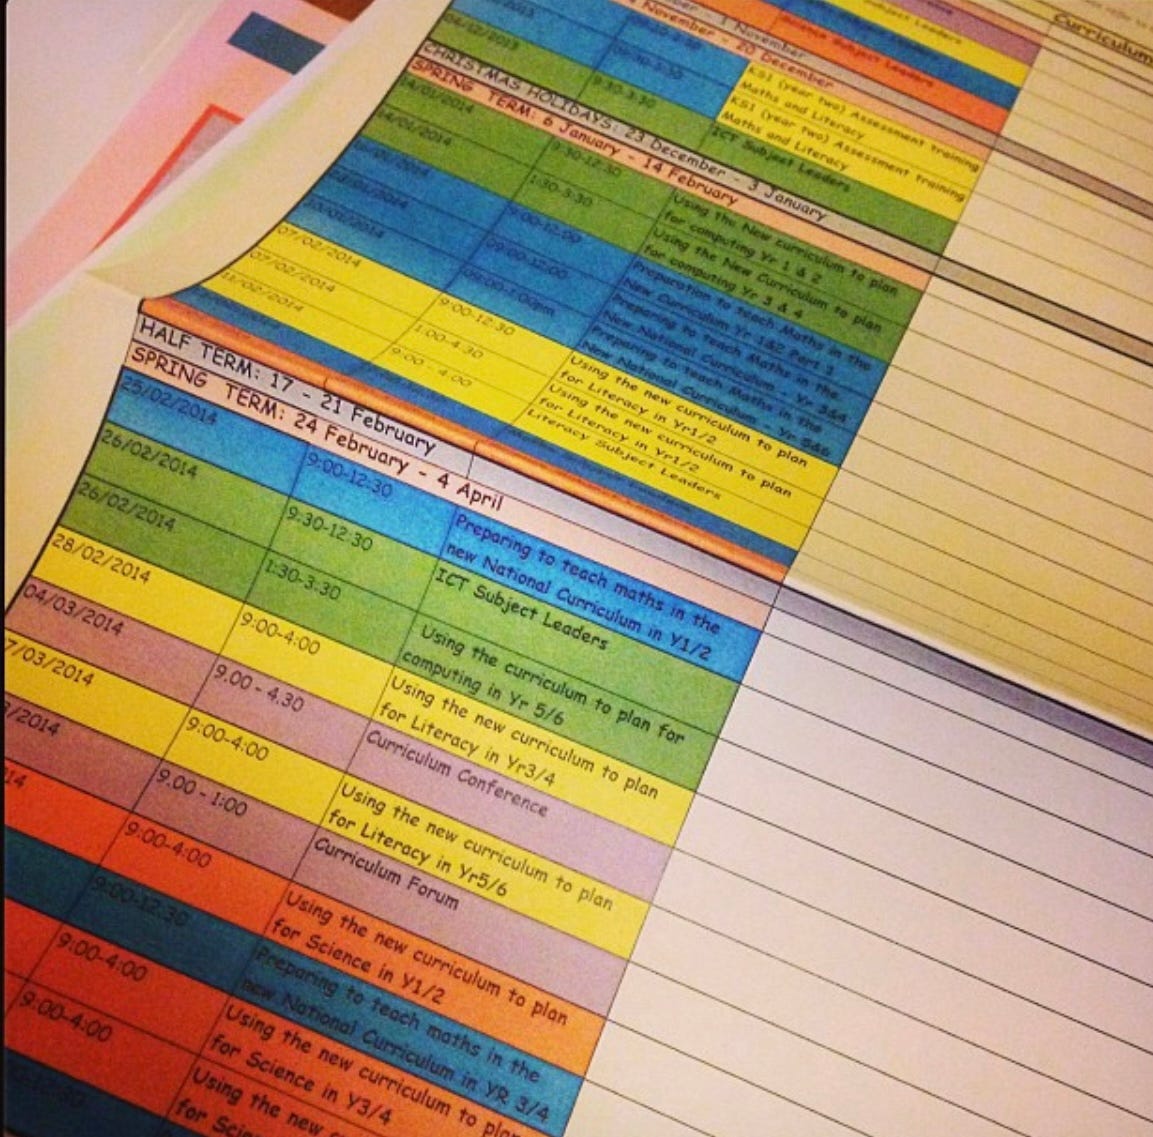 Subject Leaders
Science Subject Leaders
Curriculum
- 1 November
November - 20 December
KS1 (year two) Assessment training
Maths and Literacy
KS1 (year two) Assessment training
Maths and Literacy
9:30-3:30
ICT Subject Leaders
CHRISTMAS HOLIDAYS: 23 December - 3 January
SPRING TERM: 6 January - 14 February
9:30-12:30
Using the New curriculum to plan
for computing Yr 1 & 2
1:30-3:30
Using the New Curriculum to plan
for computing Yr 3 & 4
9:00-12:00
Preparation to teach Maths in the
New Curriculum Yr 1&2 Part 1
09:00-12:00
Preparing to teach Maths in the
New National Curriculum - Yr 3&4
09:00-1:00pm
Preparing to teach Maths in the
New National Curriculum - Yr 5&6
07/02/2014
9:00-12:30
Using the new curriculum to plan
for Literacy in Yr1/2
07/02/2014
1:00-4:30
Using the new curriculum to plan
for Literacy in Yr1/2
11/02/2014
9:00 - 4:00
Literacy Subject Leaders
HALF TERM: 17 - 21 February
SPRING TERM: 24 February - 4 April
25/02/2014
9:00-12:30
Preparing to teach maths in the
new National Curriculum in Y1/2
26/02/2014
9:30-12:30
ICT Subject Leaders
26/02/2014
1:30-3:30
Using the curriculum to plan for
computing in Yr 5/6
28/02/2014
9:00-4:00
Using the new curriculum to plan
for Literacy in Yr3/4
04/03/2014
9.00 - 4.30
Curriculum Conference
7/03/2014
9:00-4:00
Using the new curriculum to plan
for Literacy in Yr5/6
/2014
9.00 - 1:00
Curriculum Forum
14
9:00-4:00
Using the new curriculum to plan
for Science in Y1/2
9:00-12:30
Preparing to teach maths in the
new National Curriculum in YR 3/4
9:00-4:00
Using the new curriculum to plan
for Science in Y3/4
9:00-4:00
Using the new
for